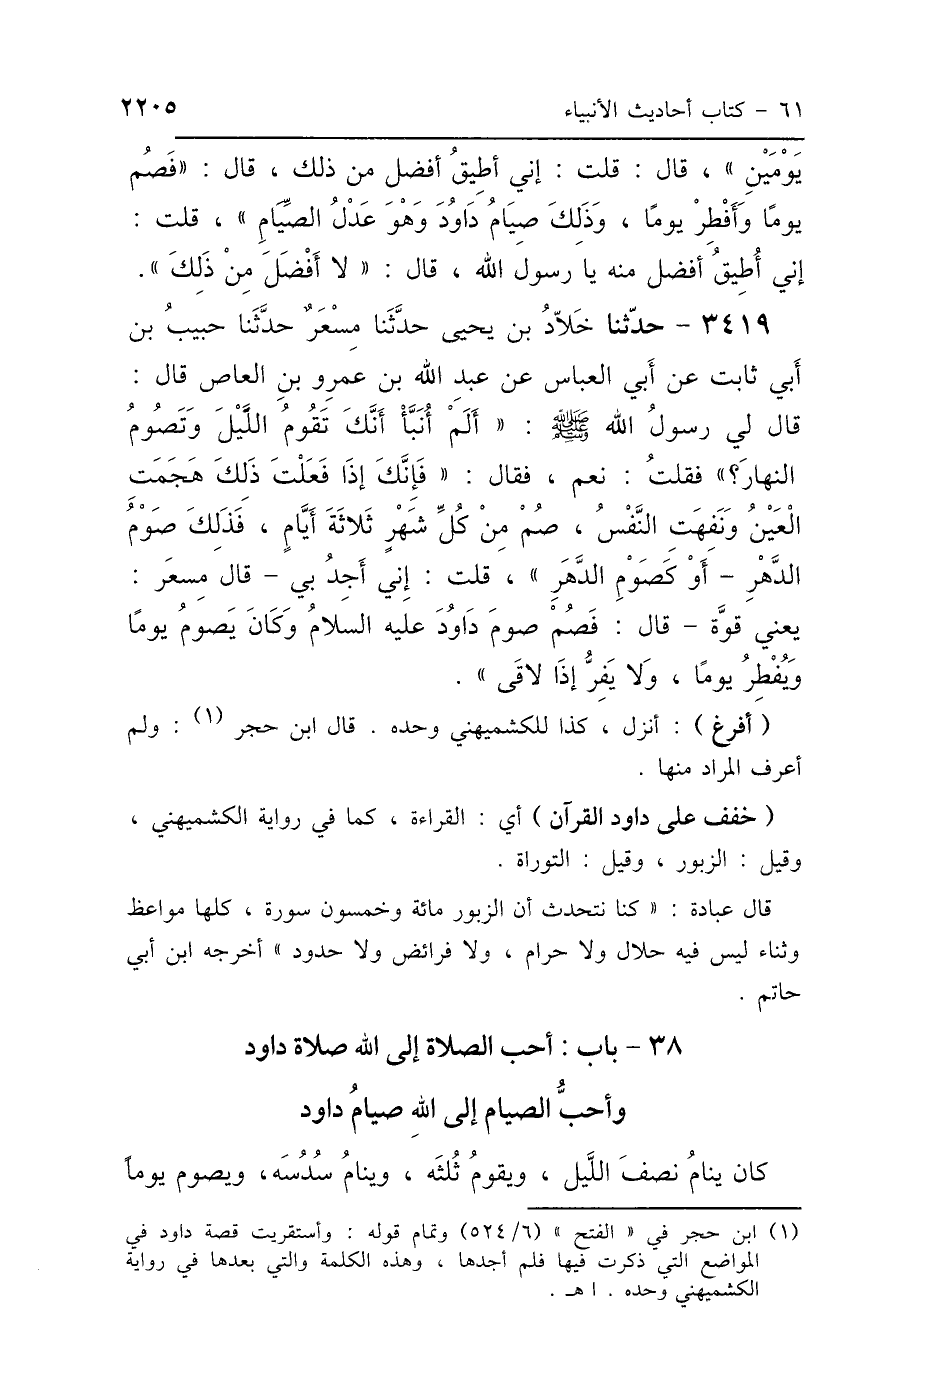 ٦١ - كتاب أحاديث الأنبياء ٢٢٠٥
يَوْمَيْنِ » ، قال : قلت : إني أطيقُ أفضل من ذلك ، قال : «فَصُم
يومًا وَأَفْطِرْ يومًا ، وَذَلكَ صيَامُ دَاوُدَ وَهْوَ عَدْلُ الصِّيَامِ » ، قلت :
إني أُطيقُ أفضل منه يا رسول الله ، قال : « لا أَفْضَلَ مِنْ ذَلكَ ».
٣٤١٩ - حدّثنا خَلاّدُ بن يحيى حدَّثَنا مِسْعَرٌ حدَّثَنا حبيبُ بن
أبي ثابت عن أَبي العباس عن عبدِ الله بن عمرِو بنِ العاص قال :
قال لي رسولُ الله ﷺ : « أَلَمْ أُنَبَّأْ أَنَّكَ تَقُومُ اللَّيْلَ وَتَصُومُ
النهارَ؟» فقلتُ : نعم ، فقال : « فَإنَّكَ إذَا فَعَلْتَ ذَلكَ هَجَمَت
الْعَيْنُ وَنَفِهَت النَّفْسُ ، صُمْ مِنْ كُلِّ شَهْرٍ ثَلاثَةَ أَيَّامٍ ، فَذَلكَ صَوْمُ
الدَّهْرِ - أَوْ كَصَوْمِ الدَّهَرِ » ، قلت : إني أَجِدُ بي - قال مِسعَر :
يعني قوَّة - قال : فَصُمْ صومَ دَاوُدَ عليه السلامُ وَكَانَ يَصومُ يومًا
وَيُفْطِرُ يومًا ، وَلا يَفِرُّ إذَا لاقَى » .
( أفرغ ) : أنزل ، كذا للكشميهني وحده . قال ابن حجر (١) : ولم
أعرف المراد منها .
( خفف على داود القرآن ) أي : القراءة ، كما في رواية الكشميهني ،
وقيل : الزبور ، وقيل : التوراة .
قال عبادة : « كنا نتحدث أن الزبور مائة وخمسون سورة ، كلها مواعظ
وثناء ليس فيه حلال ولا حرام ، ولا فرائض ولا حدود » أخرجه ابن أبي
حاتم .
٣٨ - باب : أحب الصلاة إلى الله صلاة داود
وأحبُّ الصيام إلى اللهِ صيامُ داود
كان ينامُ نصفَ الليل ، ويقومُ ثُلثَه ، وينامُ سُدُسَه، ويصوم يوماً
(١) ابن حجر في « الفتح » (٥٢٤/٦) وتمام قوله : وأستقريت قصة داود في
المواضع التي ذكرت فيها فلم أجدها ، وهذه الكلمة والتي بعدها في رواية
الكشميهني وحده . ا هـ .